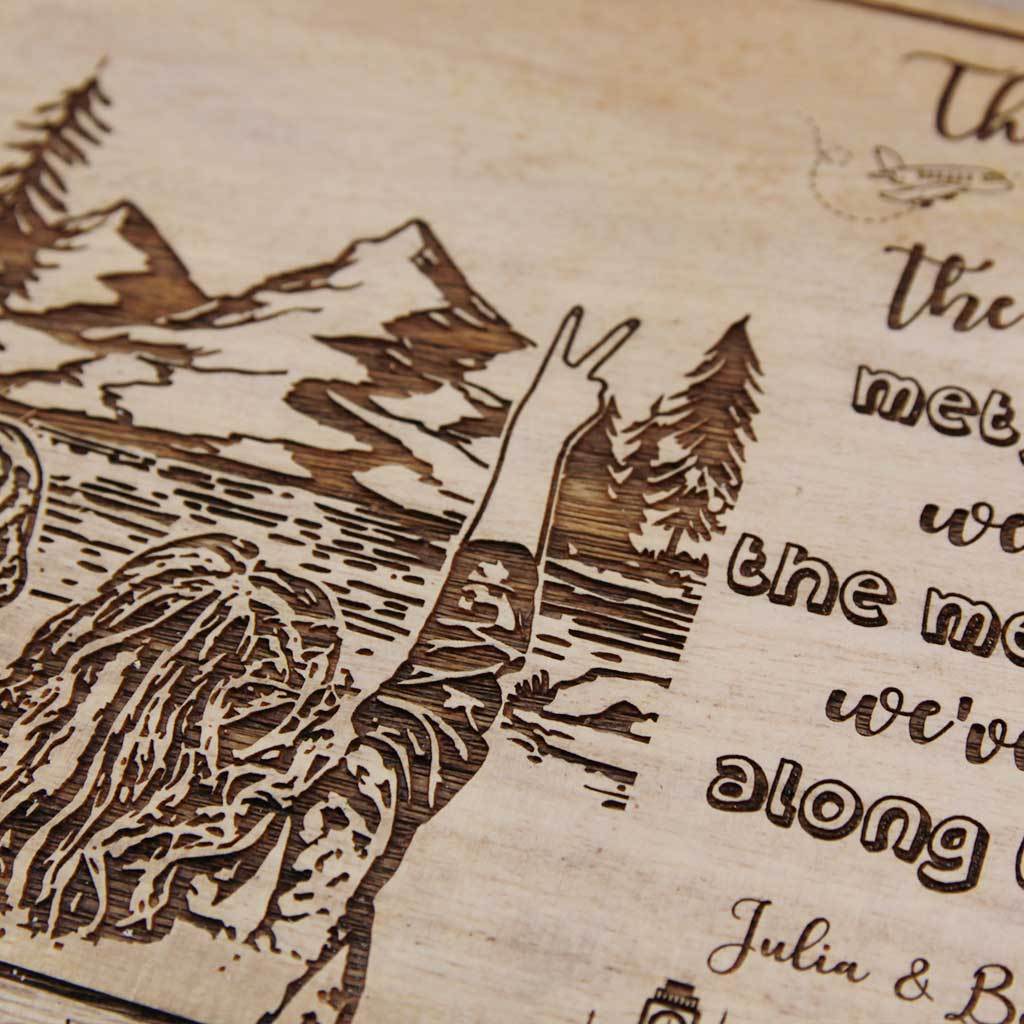 Th
the
met,
we
the me
we've
along
Julia & B